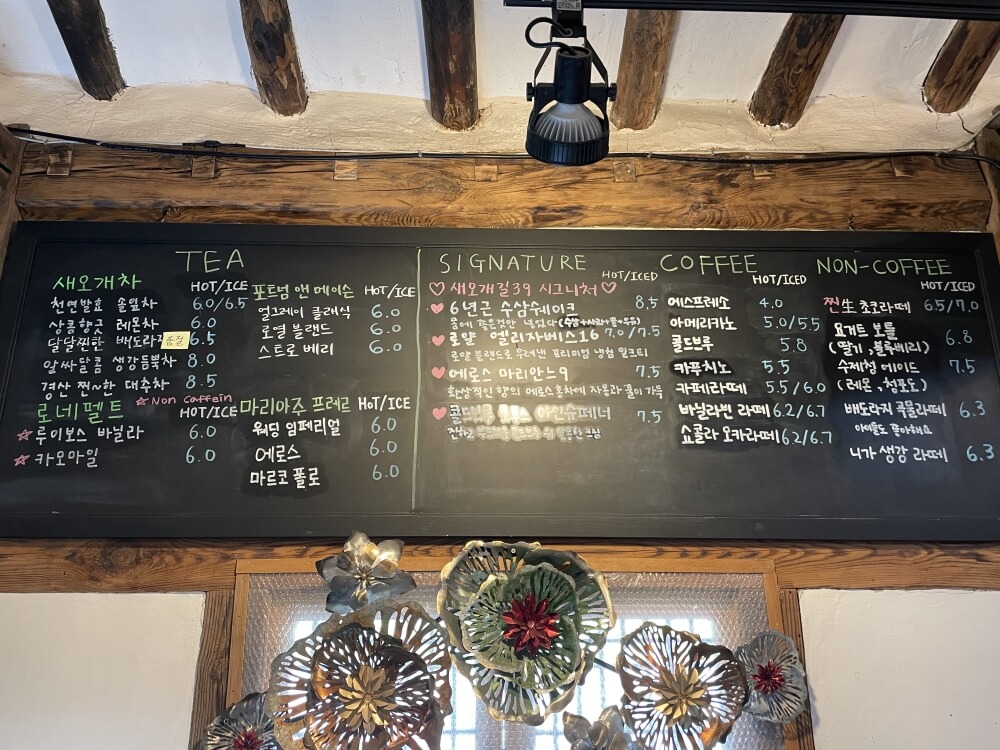 TEA
새오개차 HOT/ICE
천연발효 솔잎차 6.0/6.5
상큼향긋 레몬차 6.0
달달찐한 배도라지 품절 6.5
알싸달콤 생강듬뿍차 8.0
경산 찐~한 대추차 8.5
☆ Non Caffein
로네펠트 HOT/ICE
☆ 루이보스 바닐라 6.0
☆ 카모마일 6.0
포트넘 앤 메이슨 HOT/ICE
얼그레이 클래식 6.0
로열 블랜드 6.0
스트로베리 6.0
마리아주 프레르 HOT/ICE
웨딩 임페리얼 6.0
에로스 6.0
마르코 폴로 6.0
SIGNATURE
HOT/ICED
♡ 새오개길39 시그니처 ♡
♥ 6년근 수삼쉐이크 8.5
몸에 좋은것만 넣었다 (수삼+사과+꿀+우유)
♥ 로얄 엘리자베스16 7.0/7.5
로얄 블랜드로 우려낸 프리미엄 냉침 밀크티
♥ 에로스 마리안느9 7.5
환상적인 향의 에로스홍차에 자몽과 꿀이 가득
♥ 콜드브루 아인슈페너 7.5
COFFEE
HOT/ICED
에스프레소 4.0
아메리카노 5.0/5.5
콜드브루 5.8
카푸치노 5.5
카페라떼 5.5/6.0
바닐라빈 라떼 6.2/6.7
쇼콜라 모카라떼 6.2/6.7
NON-COFFEE
찐生 초코라떼 6.5/7.0
요거트 보틀 6.8
(딸기, 블루베리)
수제청 에이드 7.5
(레몬, 청포도)
배도라지 곡물라떼 6.3
아이들도 좋아해요
니가 생강 라떼 6.3